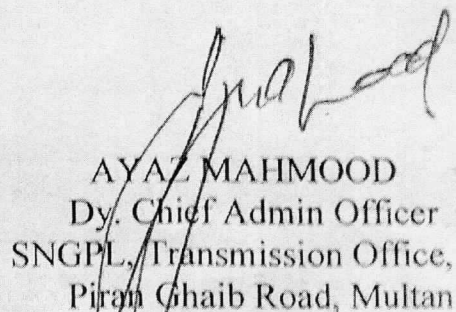 AYAZ MAHMOOD
Dy. Chief Admin Officer
SNGPL, Transmission Office,
Piran Ghaib Road, Multan